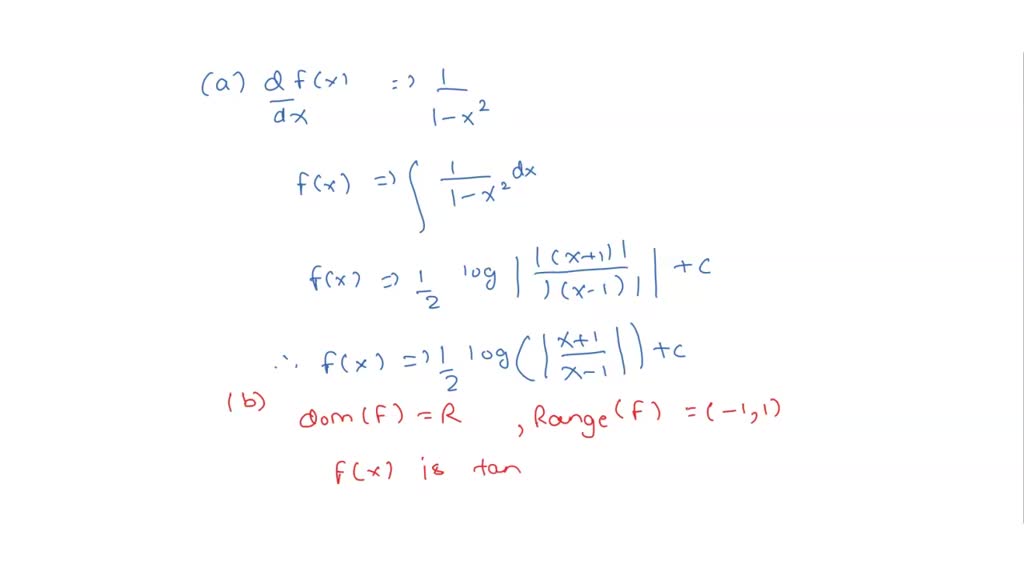 (a) d/dx f(x) => 1/(1-x²)
f(x) => ∫ 1/(1-x²) dx
f(x) => 1/2 log | |(x+1)| / |(x-1)| | + c
∴ f(x) => 1/2 log(|(x+1)/(x-1)|) + c
(b) dom(f) = R , Range(f) = (-1,1)
f(x) is tan